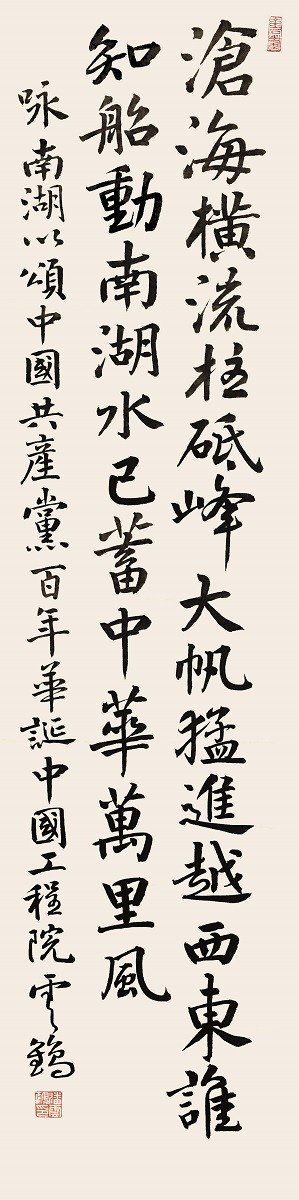 滄海橫流柱砥峰大帆猛進越西東誰
知船動南湖水已蓄中華萬里風
咏南湖以頌中國共產黨百年華誕中國工程院雲鶴